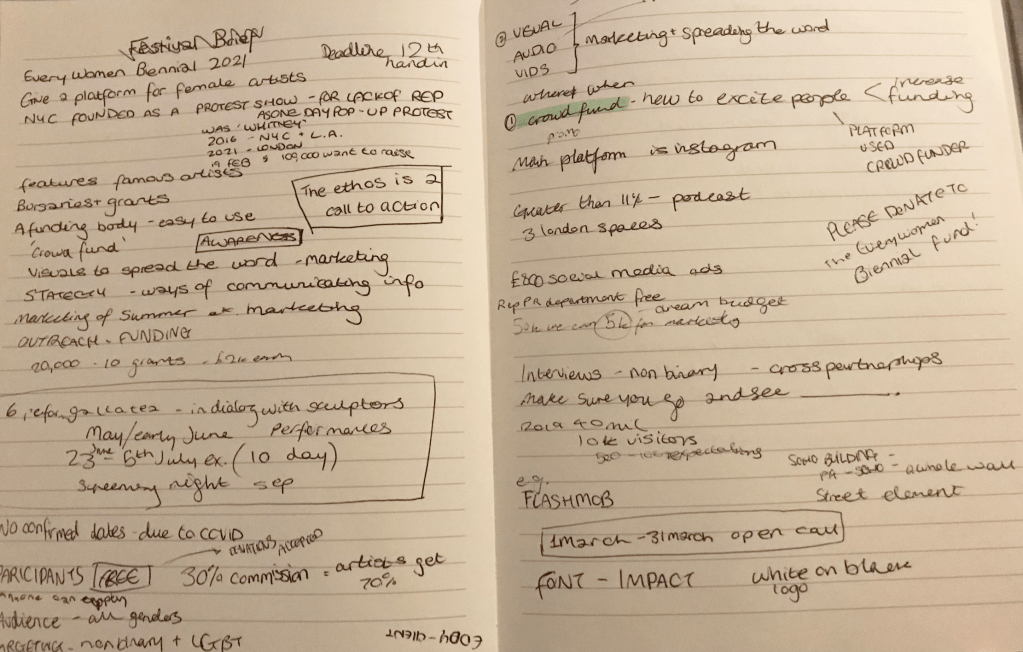 Festival Brief
Deadline 12th
hand in
Every Women Biennial 2021
Give a platform for female artists
NYC FOUNDED AS A PROTEST SHOW - FOR LACK OF REP
AS ONE DAY POP-UP PROTEST
WAS 'WHITNEY'
2016 - NYC + L.A.
2021 - LONDON
FEB $ 100,000 want to raise
features famous artists
Bursaries + grants
The ethos is a
call to action
A funding body - easy to use
'Crowd fund'
AWARENESS
Visuals to spread the word - marketing
STATEGY - ways of communicating info
Marketing of Summer marketing
OUTREACH - FUNDING
20,000 - 10 grants - £2k each
6 - in dialog with sculptors
May/early June Performances
23rd June - 5th July ex. (10 day)
Screening night sep
No confirmed dates - due to COVID
DONATIONS ACCEPTED
PARICIPANTS FREE 30% commission = artists get
70%
Anyone can apply
Audience - all genders
TARGETING - nonbinary + LGBT
EDDY - CLIENT
② VISUAL
AUDIO
VIDS
Marketing + spreading the word
where + when
① crowd fund - how to excite people < increase
funding
promo
PLATFORM
USED
CROWDFUNDER
Main platform is instagram
Greater than 11% - podcast
3 london spaces
PLEASE DONATE TO
The Everywoman
Biennial Fund!
£800 social media ads
Rep PR department free
- dream budget
50k we can 5k for marketing
Interviews - non binary - cross partnerships
make sure you go and see
2019 40
10k visitors
500 - expectations
SOHO BUILDING -
PA - SOHO - a whole wall
Street element
e.g.
FLASHMOB
1 March - 31 march open call
FONT - IMPACT
White on black
logo